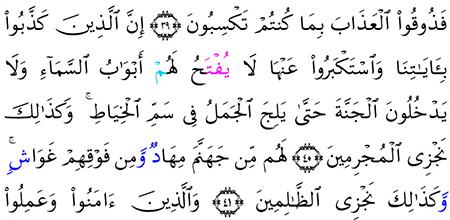 فَذُوقُوا۟ ٱلْعَذَابَ بِمَا كُنتُمْ تَكْسِبُونَ ﴿٣٩﴾ إِنَّ ٱلَّذِينَ كَذَّبُوا۟
بِـَٔايَـٰتِنَا وَٱسْتَكْبَرُوا۟ عَنْهَا لَا يُفْتَحُ لَهُمْ أَبْوَٰبُ ٱلسَّمَآءِ وَلَا
يَدْخُلُونَ ٱلْجَنَّةَ حَتَّىٰ يَلِجَ ٱلْجَمَلُ فِى سَمِّ ٱلْخِيَاطِ ۚ وَكَذَٰلِكَ
نَجْزِى ٱلْمُجْرِمِينَ ﴿٤٠﴾ لَهُم مِّن جَهَنَّمَ مِهَادٌ وَّمِن فَوْقِهِمْ غَوَاشٍ ۚ
وَّكَذَٰلِكَ نَجْزِى ٱلظَّـٰلِمِينَ ﴿٤١﴾ وَٱلَّذِينَ ءَامَنُوا۟ وَعَمِلُوا۟